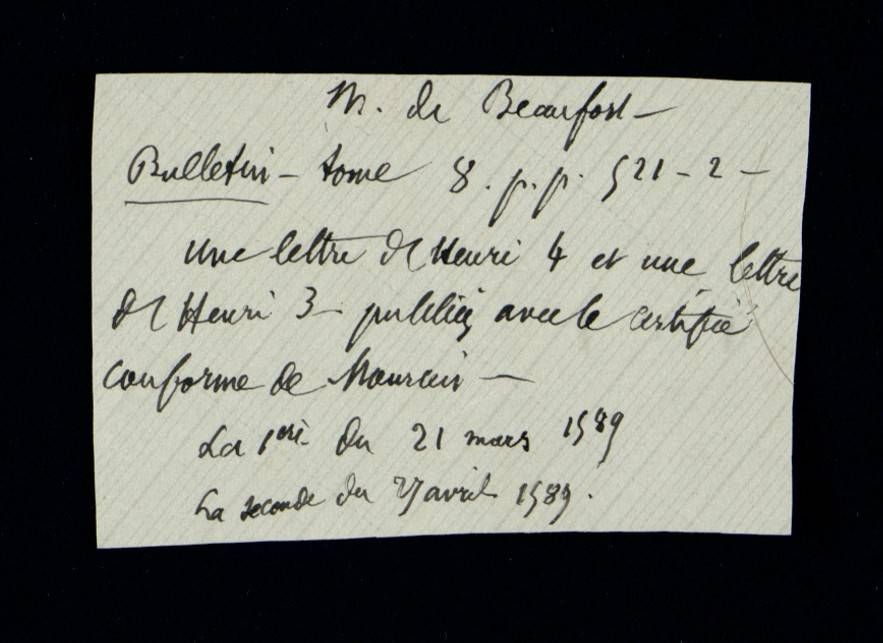 M. de Beaufort —
Bulletin — tome 8. p.p. 521 - 2 —
Une lettre de Henri 4 et une lettre
de Henri 3 publiées avec le certifié
conforme de Mourcin —
La 1ère du 21 mars 1589
La seconde du 27 avril 1589.